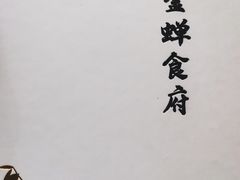 金蝉食府